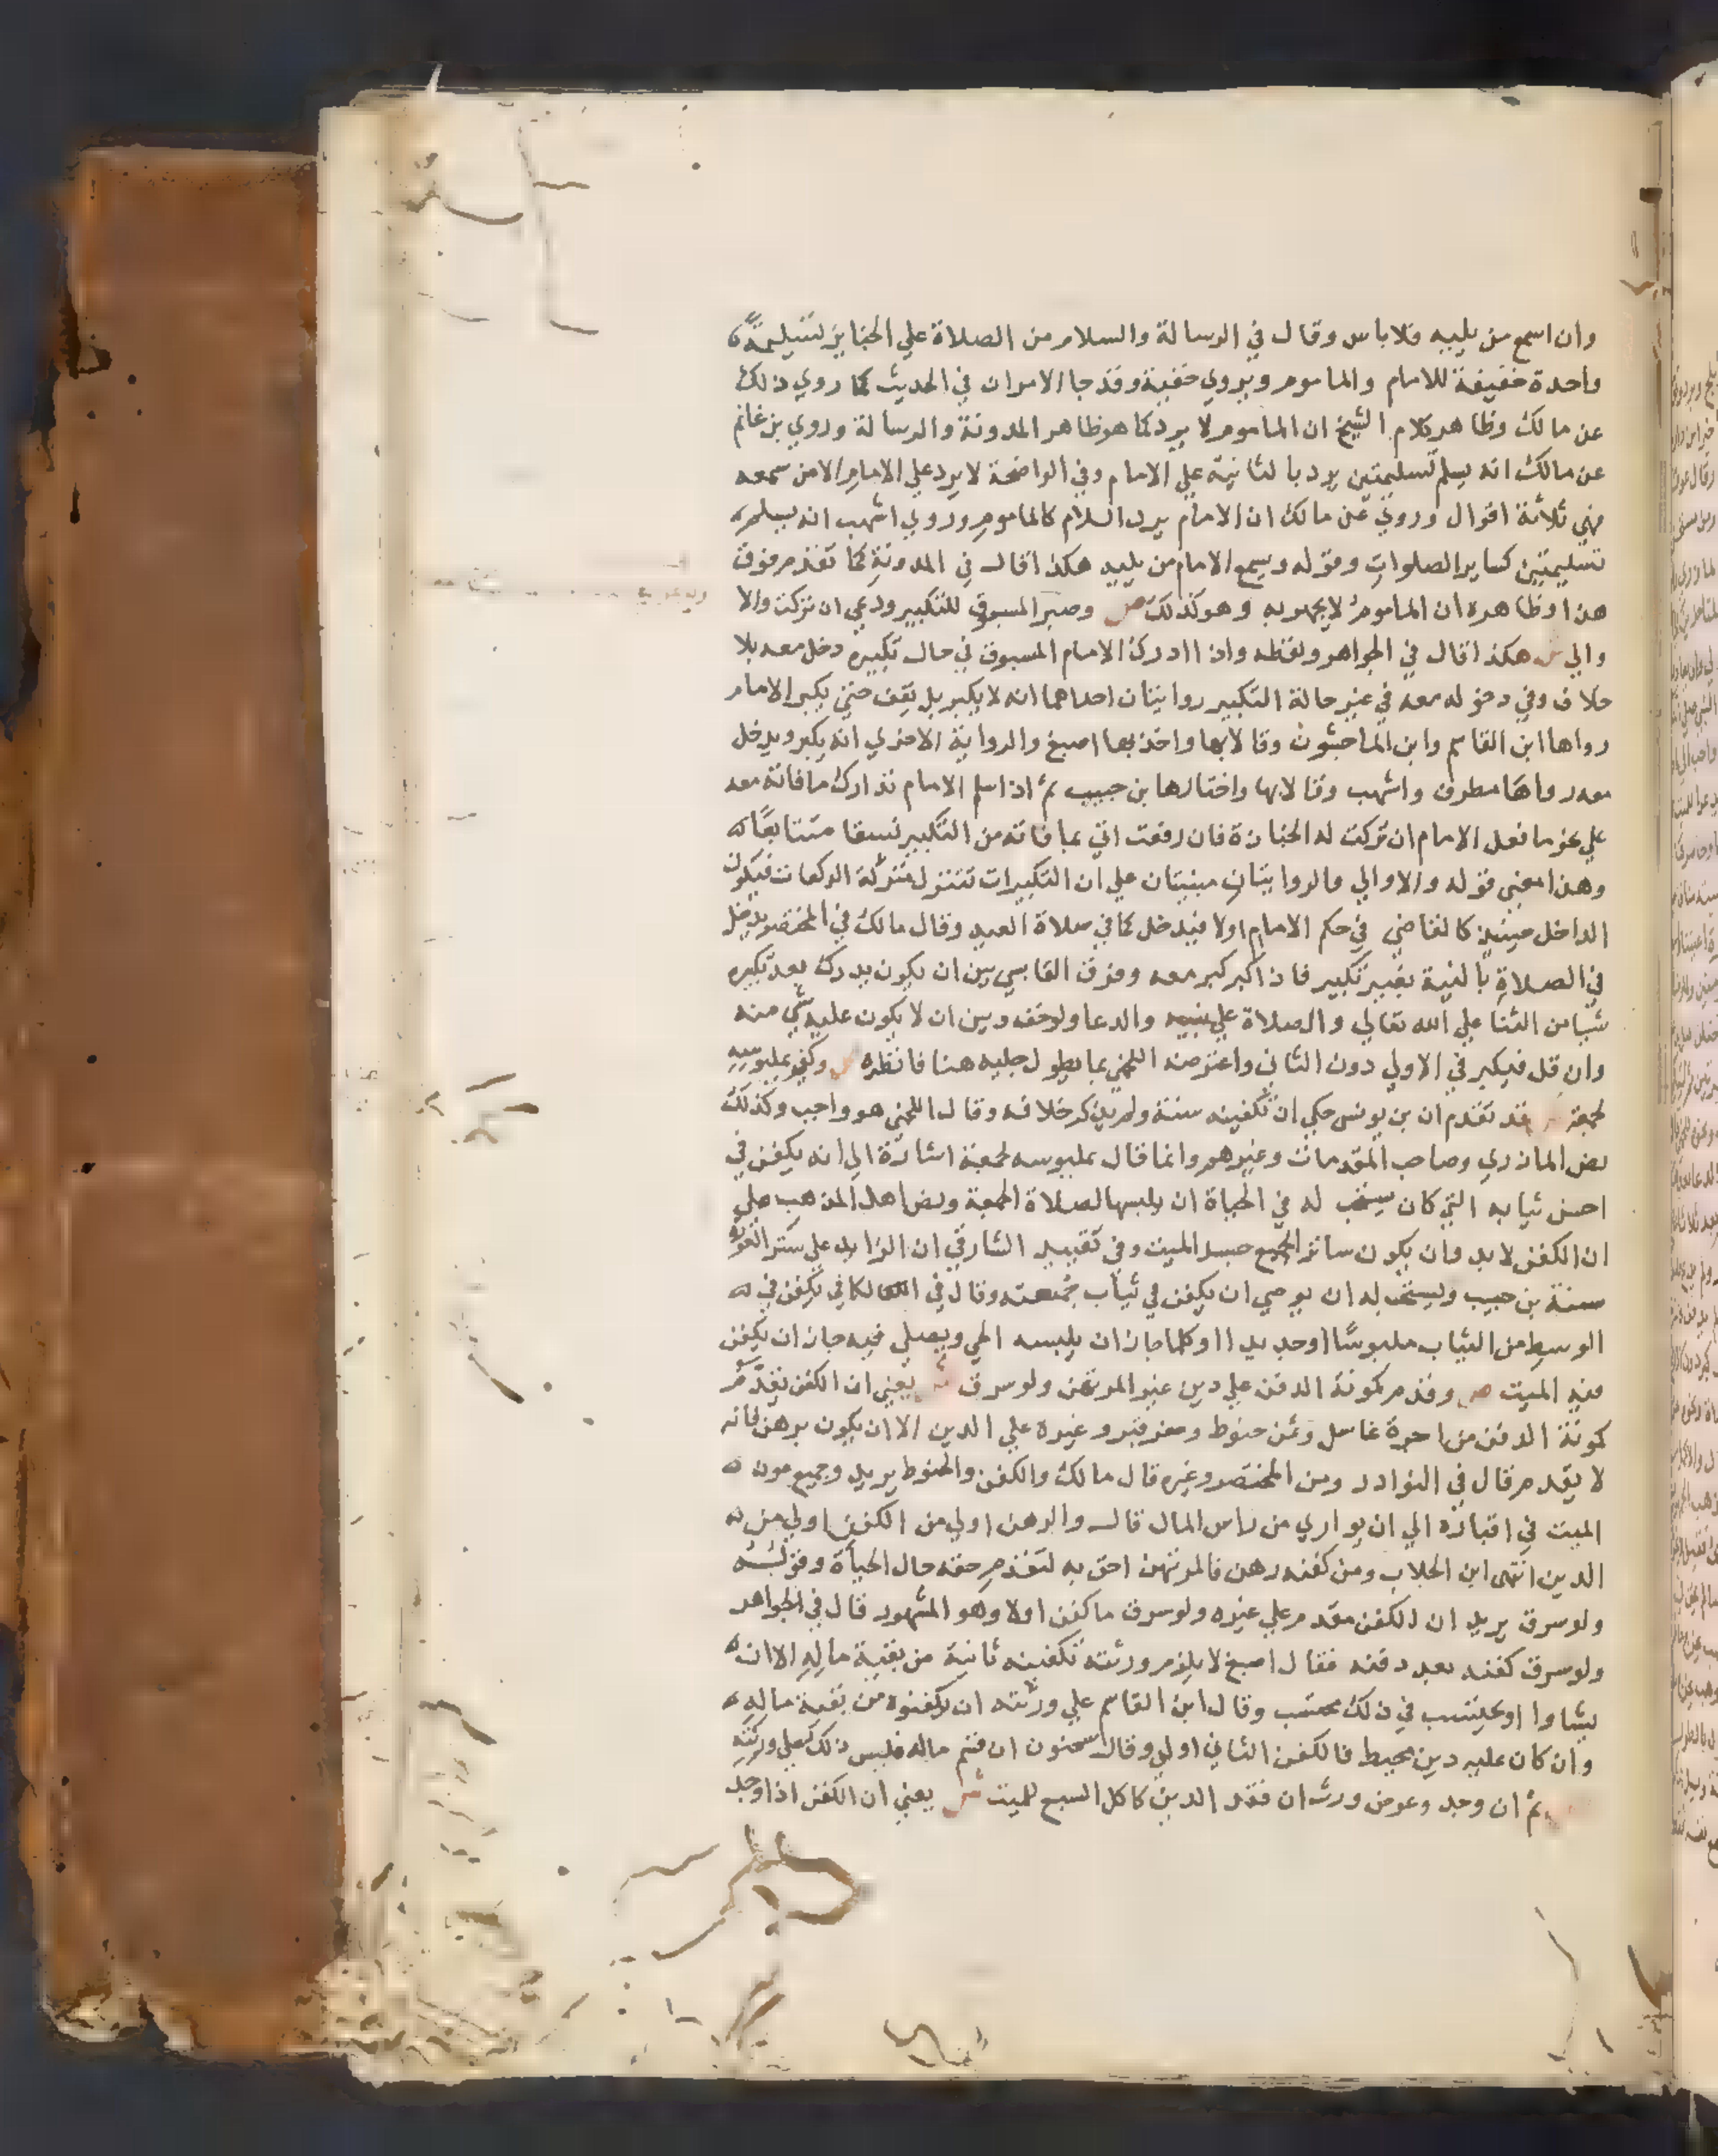 وان اسمع من يليه فلا باس وقال في الرسالة والسلام من الصلاة علي الجنايز تسليمة
واحدة خفيفة للامام والماموم ويروي خفية وقد جا الامران في الحديث كما روي ذلك
عن مالك وظاهر كلام الشيخ ان الماموم لا يرد كما هو ظاهر المدونة والرسالة وروي بن غانم
عن مالك انه يسلم تسليمتين يرد بالثانية علي الامام وفي الواضحة لا يرد علي الامام الا من سمعه
فهي ثلاثة اقوال وروي عن مالك ان الامام يرد السلام كالماموم وروي اشهب انه يسلم
تسليمتين كساير الصلوات وقوله ويسمع الامام من يليه هكذا قال في المدونة كما تقدم فوق
هذا وظاهره ان الماموم لا يجهر به وهو كذلك ص وصبر المسبوق للتكبير ودعي ان تركت والا
والي ش هكذا قال في الجواهر ولفظه واذا ادرك الامام المسبوق في حال تكبيره دخل معه بلا
خلاف وفي دخوله معه في غير حالة التكبير روايتان احداهما انه لا يكبر بل يقف حتي يكبر الامام
رواها ابن القاسم وابن الماجشون وقالا بها واخذ بها اصبغ والرواية الاخري انه يكبر ويدخل
معه رواها مطرف واشهب وقالا بها واختارها بن حبيب ثم اذا سلم الامام تدارك ما فاته معه
علي نحو ما فعل الامام ان تركت له الجنازة فان رفعت اتي بما فاته من التكبير نسقا متتابعا
وهذا معني قوله والا والي والروايتان مبنيتان علي ان التكبيرات تتنزل منزلة الركعات فيكون
الداخل حينيذ كالقاضي في حكم الامام اولا فيدخل كما في صلاة العيد وقال مالك في المختصر يدخل
في الصلاة بالنية بغير تكبير فاذا كبر كبر معه وفرق القابسي بين ان يكون يدرك بعد تكبيره
شيا من الثنا علي الله تعالي والصلاة علي نبيه والدعا ولو خف وبين ان لا يكون عليه شي منه
وان قل فيكبر في الاولي دون الثاني واعترضه اللخمي بما يطول جلبه هنا فانظره ص وكفن بملبوسه
لجمعة ش قد تقدم ان بن يونس حكي ان تكفينه سنة ولم يذكر خلافه وقال اللخمي هو واجب وكذلك
نص المازري وصاحب المقدمات وغيرهم وانما قال بملبوسه لجمعة اشارة الي انه يكفن في
احسن ثيابه التي كان يستحب له في الحياة ان يلبسها لصلاة الجمعة ونص اهل المذهب علي
ان الكفن لا بد وان يكون ساترا لجميع جسد الميت وفي تقييد الشارقي ان الزايد علي ستر العورة
سنة بن حبيب ويستحب له ان يوصي ان يكفن في ثياب جمعته وقال في الكافي يكفن في
الوسط من الثياب ملبوسا او جديدا وكلما جاز ان يلبسه الحي ويصلي فيه جاز ان يكفن
فيه الميت ص وقدم كمونة الدفن علي دين غير المرتهن ولو سرق ش يعني ان الكفن يقدم
كمونة الدفن من اجرة غاسل وثمن حنوط وحفر قبر وغيره علي الدين الا ان يكون برهن فانه
لا يقدم قال في النوادر ومن المختصر وغيره قال مالك والكفن والحنوط يريد وجميع مون
الميت في اقباره الي ان يواري من راس المال قال والرهن اولي من الكفن اولي من
الدين انتهي ابن الجلاب ومن كفنه رهن فالمرتهن احق به لتقدم حقه حال الحياة وقوله
ولو سرق يريد ان الكفن مقدم علي غيره ولو سرق ما كفن اولا وهو المشهور قال في الجواهر
ولو سرق كفنه بعد دفنه فقال اصبغ لا يلزم ورثته تكفينه ثانية من بقية ماله الا ان
يشاوا او يحتسب في ذلك محتسب وقال ابن القاسم علي ورثته ان يكفنوه من بقية ماله
وان كان عليه دين محيط فالكفن الثاني اولي وقال سحنون ان قسم ماله فليس ذلك علي ورثته
ثم ان وجد وعوض ورث ان فقد الدين كاكل السبع للميت ش يعني ان الكفن اذا وجد